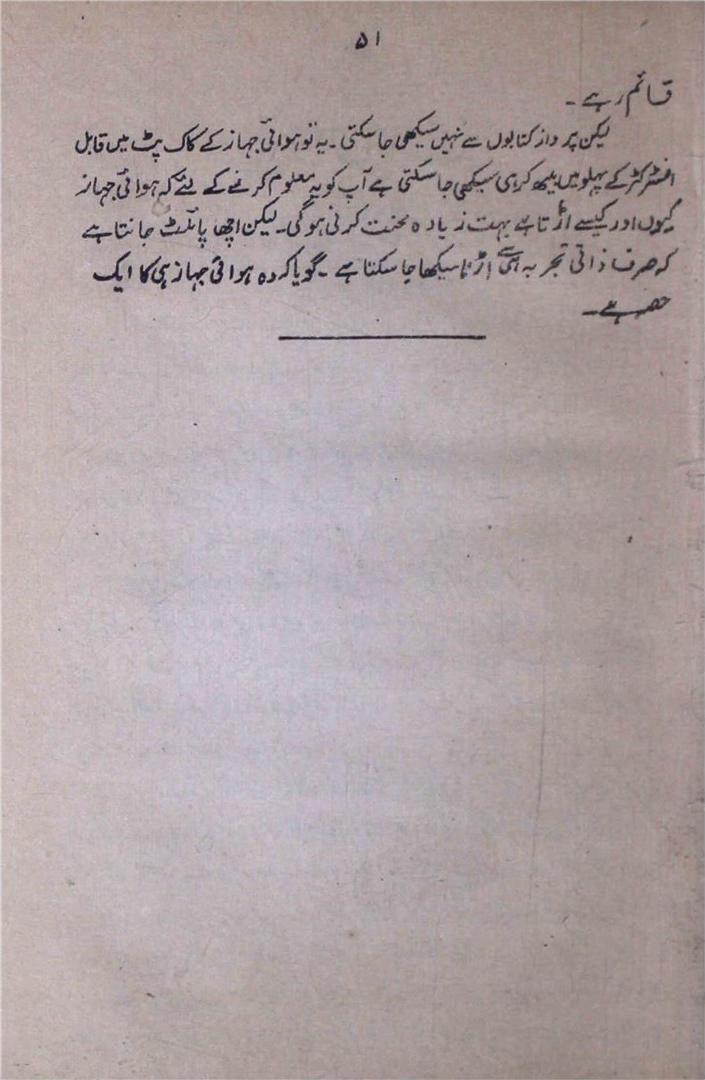 ۵۱
قائم رہے۔
لیکن پرواز کتابوں سے نہیں سیکھی جا سکتی۔ یہ تو ہوائی جہاز کے کاک پٹ میں قابل
انسٹرکٹر کے پہلو میں بیٹھ کر ہی سیکھی جا سکتی ہے آپ کو یہ معلوم کرنے کے لئے کہ ہوائی جہاز
کیوں اور کیسے اڑتا ہے بہت زیادہ محنت کرنی ہوگی۔ لیکن اچھا پائلٹ جانتا ہے
کہ صرف ذاتی تجربہ ہی سے اڑنا سیکھا جا سکتا ہے۔ گویا کہ وہ ہوائی جہاز ہی کا ایک
حصہ ہے۔